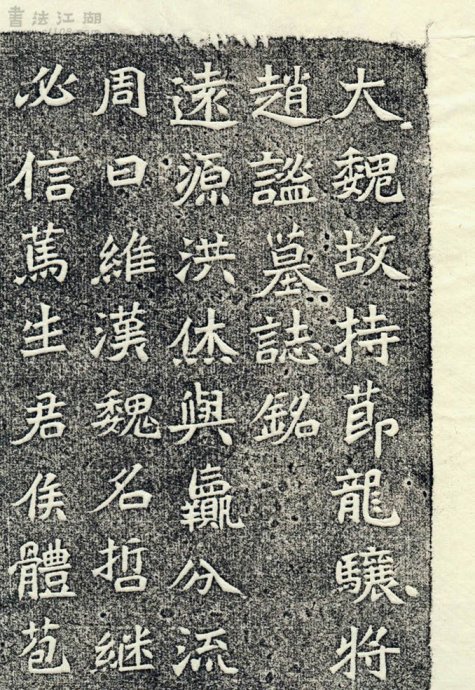 書法江湖
大魏故持莭龍驤將
趙謐墓誌銘
遠源洪休與贏分流
周曰維漢魏名哲継
必信篤生君侯體苞